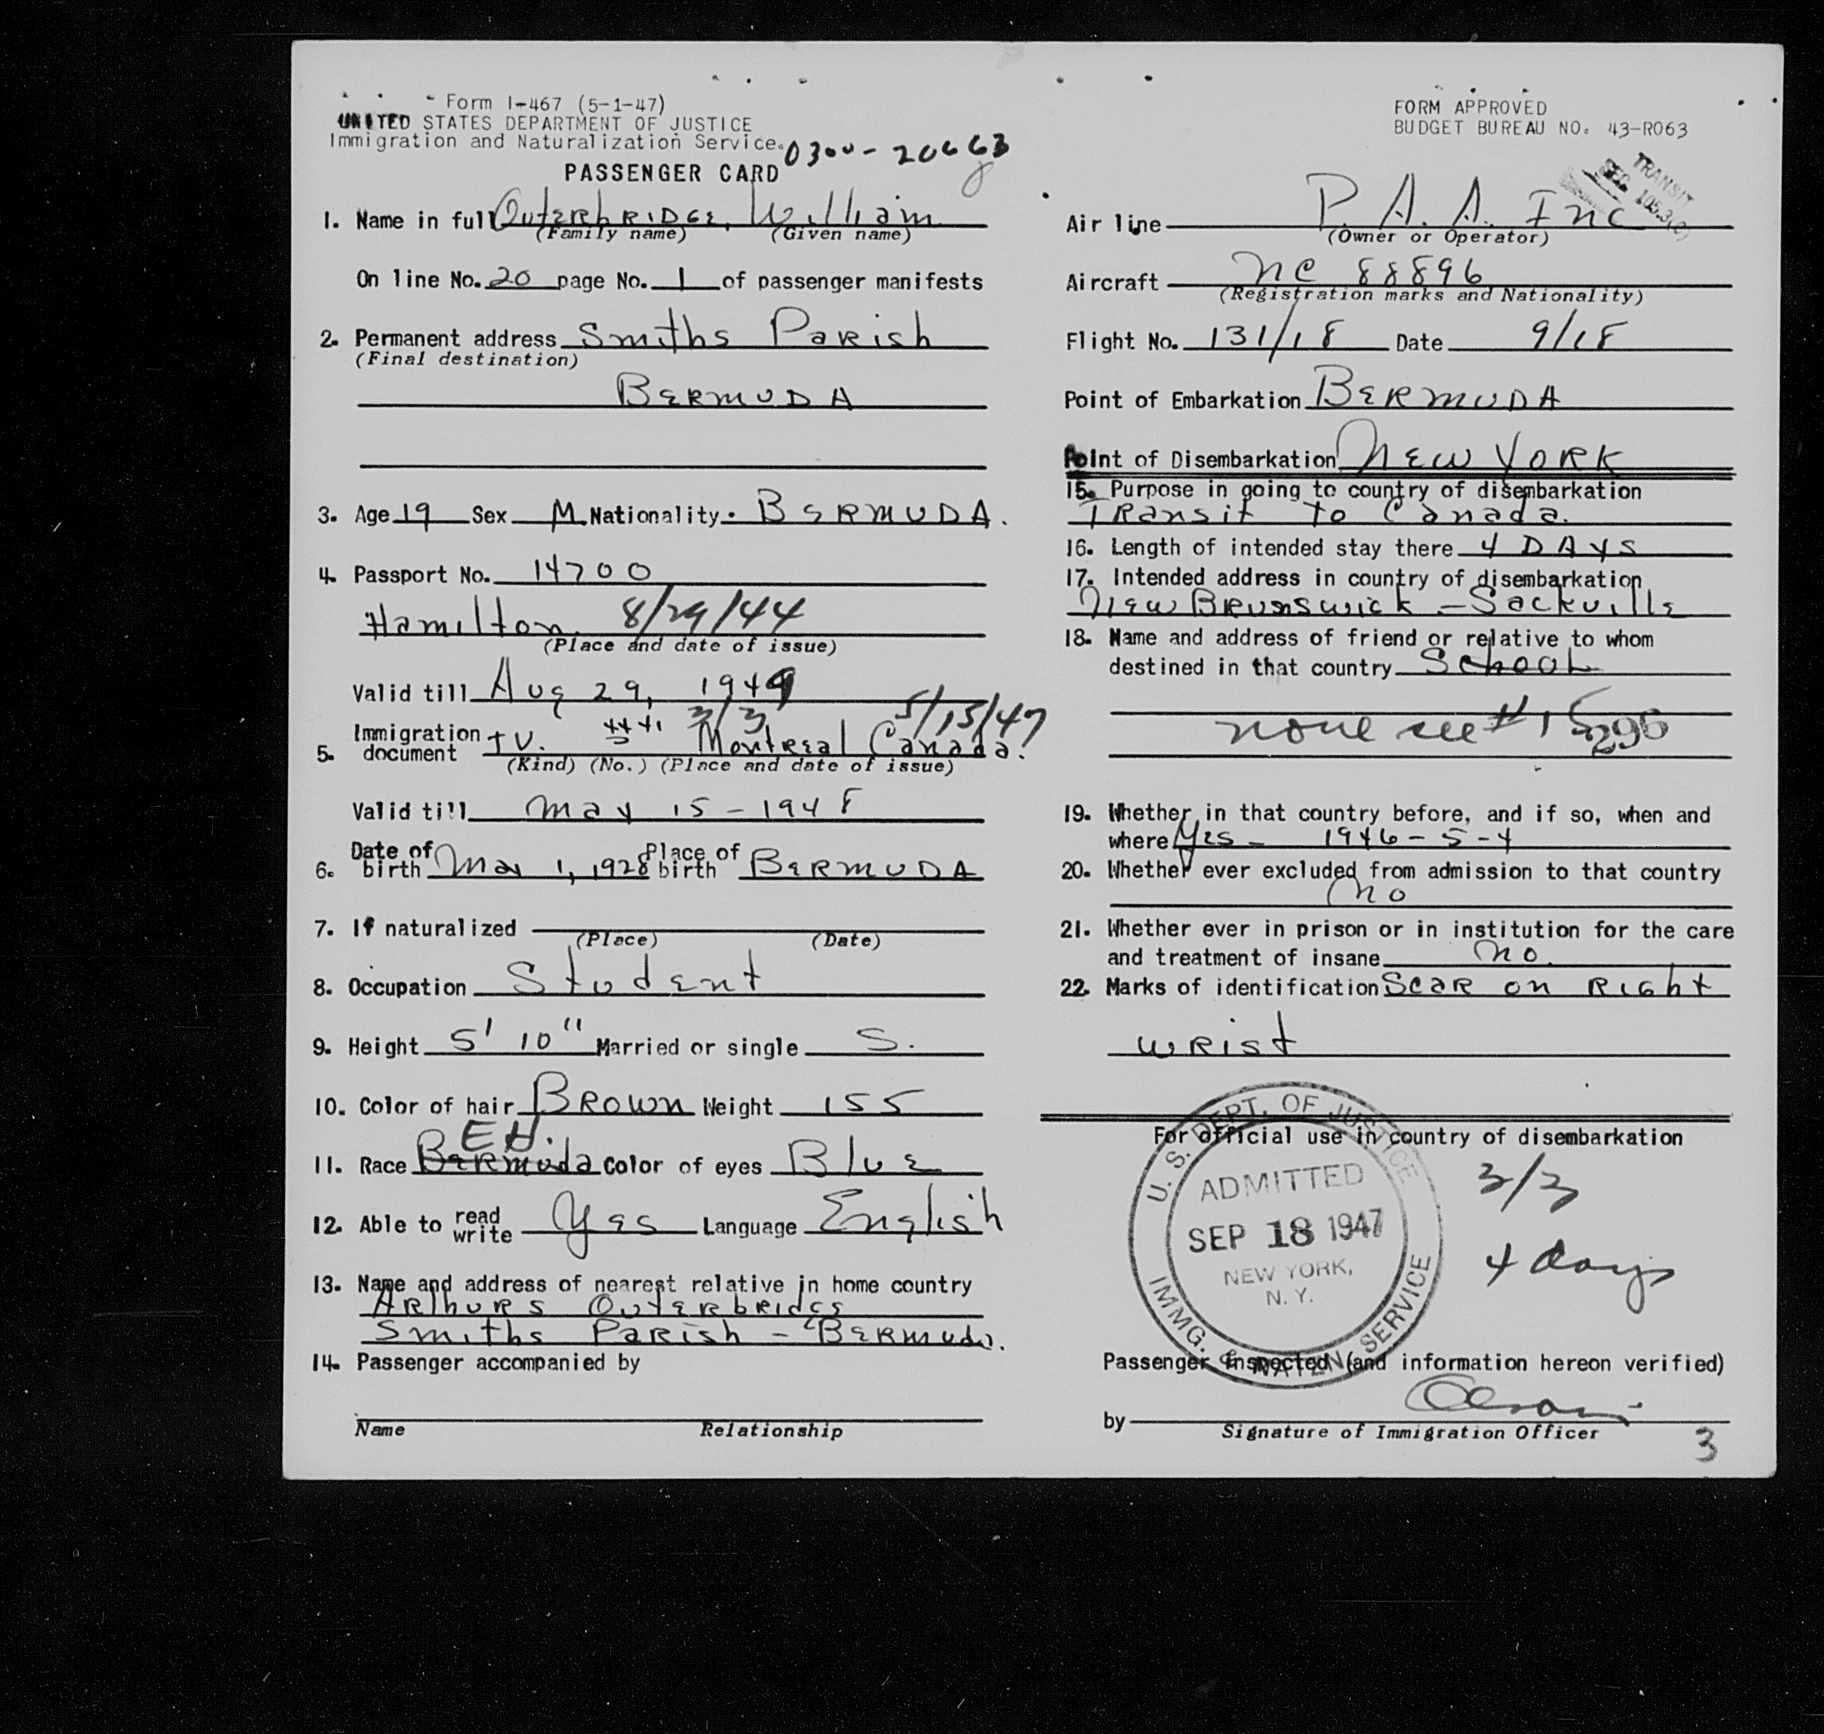 Form I-467 (5-1-47)
UNITED STATES DEPARTMENT OF JUSTICE
Immigration and Naturalization Service.
0300-20663
PASSENGER CARD
1. Name in full Outerbridge, William
(Family name) (Given name)
On line No. 20 page No. 1 of passenger manifests
2. Permanent address Smiths Parish
(Final destination)
BERMUDA
3. Age 19 Sex M. Nationality. BERMUDA.
4. Passport No. 14700
Hamilton 8/29/44
(Place and date of issue)
Valid till Aug 29, 1949
3/3 5/15/47
5. Immigration document TV. Montreal Canada.
(Kind) (No.) (Place and date of issue)
Valid till May 15-1948
6. Date of birth May 1, 1928 Place of birth BERMUDA
7. If naturalized
(Place) (Date)
8. Occupation Student
9. Height 5' 10" Married or single S.
10. Color of hair BROWN Weight 155
EH.
11. Race Bermuda Color of eyes Blue
12. Able to read write Yes Language English
13. Name and address of nearest relative in home country
Arthurs Outerbridge
Smiths Parish - Bermuda.
14. Passenger accompanied by
Name Relationship
FORM APPROVED
BUDGET BUREAU NO. 43-R063
TRANSIT
SEC. 105.3(2)
Air line P. A. A. Inc
(Owner or Operator)
Aircraft NC 88896
(Registration marks and Nationality)
Flight No. 131/18 Date 9/18
Point of Embarkation BERMUDA
Point of Disembarkation NEW YORK
15. Purpose in going to country of disembarkation
Transit to Canada.
16. Length of intended stay there 4 DAYS
17. Intended address in country of disembarkation
New Brunswick - Sackville
18. Name and address of friend or relative to whom
destined in that country School
none see # 15
19. Whether in that country before, and if so, when and
where Yes - 1946-5-4
20. Whether ever excluded from admission to that country
No
21. Whether ever in prison or in institution for the care
and treatment of insane No.
22. Marks of identification Scar on Right
wrist
For official use in country of disembarkation
U. S. DEPT. OF JUSTICE
ADMITTED
SEP 18 1947
NEW YORK,
N. Y.
IMMG. & NATZN. SERVICE
3/3
4 days
Passenger inspected (and information hereon verified)
by
Signature of Immigration Officer
3